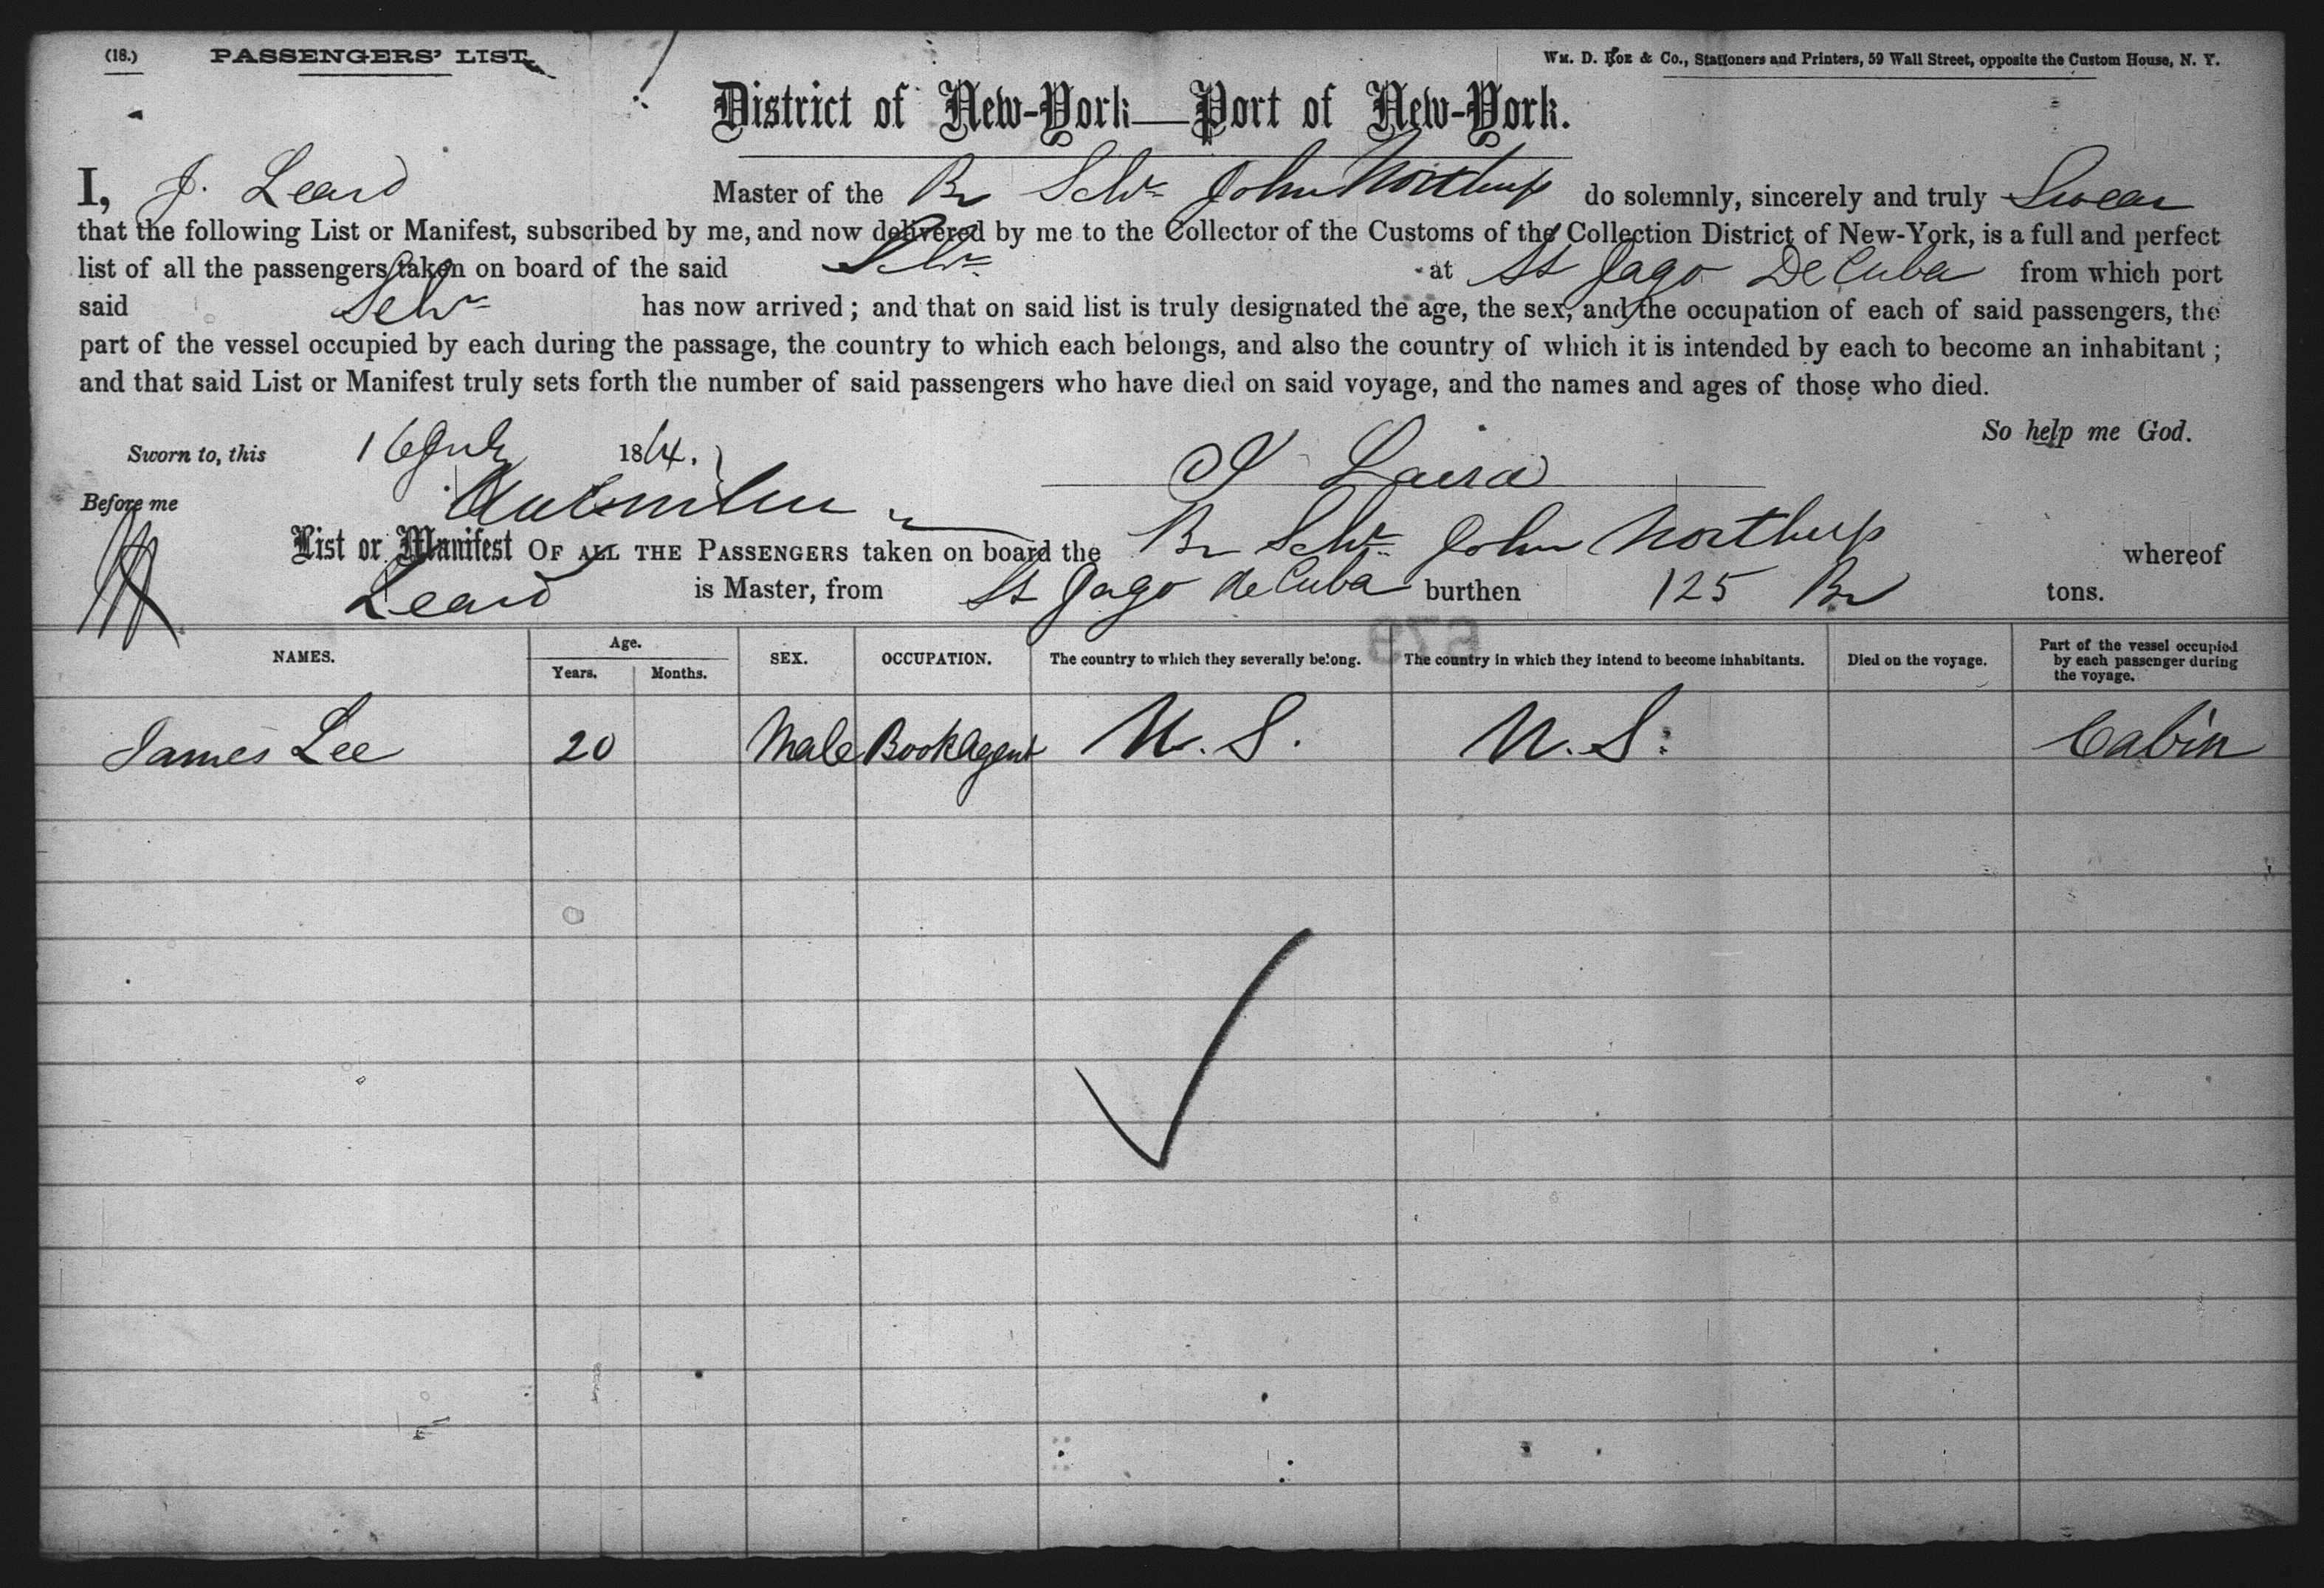 (18.) PASSENGERS' LIST. Wm. D. Roe & Co., Stationers and Printers, 59 Wall Street, opposite the Custom House, N. Y.
District of New-York—Port of New-York.
I, J. Leard Master of the Br Schr John Northup do solemnly, sincerely and truly Swear
that the following List or Manifest, subscribed by me, and now delivered by me to the Collector of the Customs of the Collection District of New-York, is a full and perfect
list of all the passengers taken on board of the said Schr at St Jago De Cuba from which port
said Schr has now arrived; and that on said list is truly designated the age, the sex, and the occupation of each of said passengers, the
part of the vessel occupied by each during the passage, the country to which each belongs, and also the country of which it is intended by each to become an inhabitant;
and that said List or Manifest truly sets forth the number of said passengers who have died on said voyage, and the names and ages of those who died.
So help me God.
Sworn to, this 16 July 1864. J Laird
Before me
List or Manifest OF ALL THE PASSENGERS taken on board the Br Schr John Northup whereof
Leard is Master, from St Jago de Cuba burthen 125 Br tons.
679
NAMES. Age. Years. Months. SEX. OCCUPATION. The country to which they severally belong. The country in which they intend to become inhabitants. Died on the voyage. Part of the vessel occupied by each passenger during the voyage.
James Lee 20 Male Book Agent U. S. U. S. Cabin